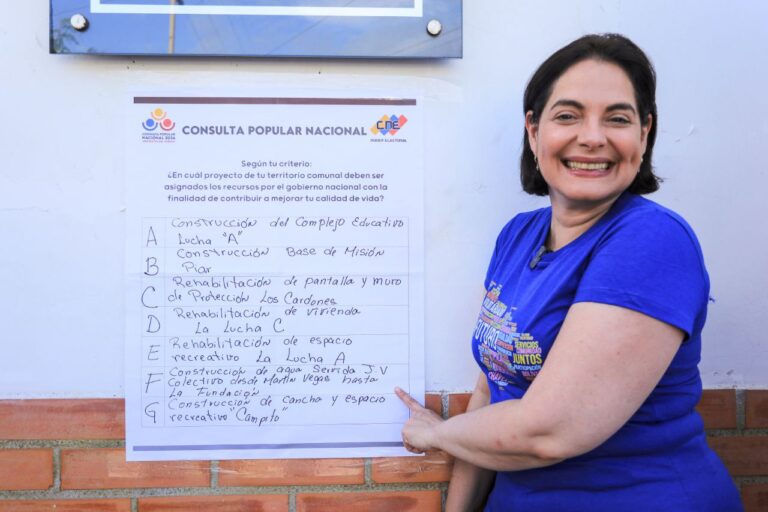 CONSULTA POPULAR
NACIONAL 2024
CONSULTA POPULAR NACIONAL
CNE
PODER ELECTORAL
Según tu criterio:
¿En cuál proyecto de tu territorio comunal deben ser
asignados los recursos por el gobierno nacional con la
finalidad de contribuir a mejorar tu calidad de vida?
A Construcción del Complejo Educativo
Lucha "A"
B Construcción Base de Misión
Piar
C Rehabilitación de pantalla y muro
de Protección Los Cardones
D Rehabilitación de vivienda
La Lucha C
E Rehabilitación de espacio
recreativo La Lucha A
F Construcción de agua Servida J.V
Colectivo desde Martín Vegas hasta
La Fundación
G Construcción de cancha y espacio
recreativo "Campito"
FUTURO
SERVICIOS
JUNTOS